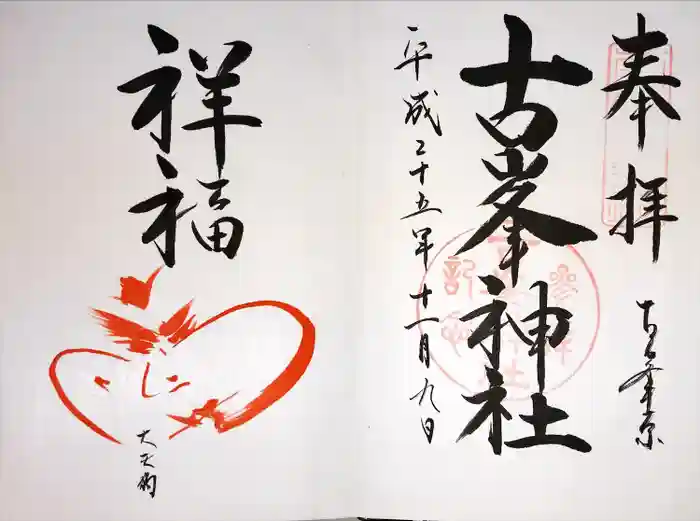 奉拝
古峯原
古峯神社
平成二十五年十一月九日
祥福
大天狗